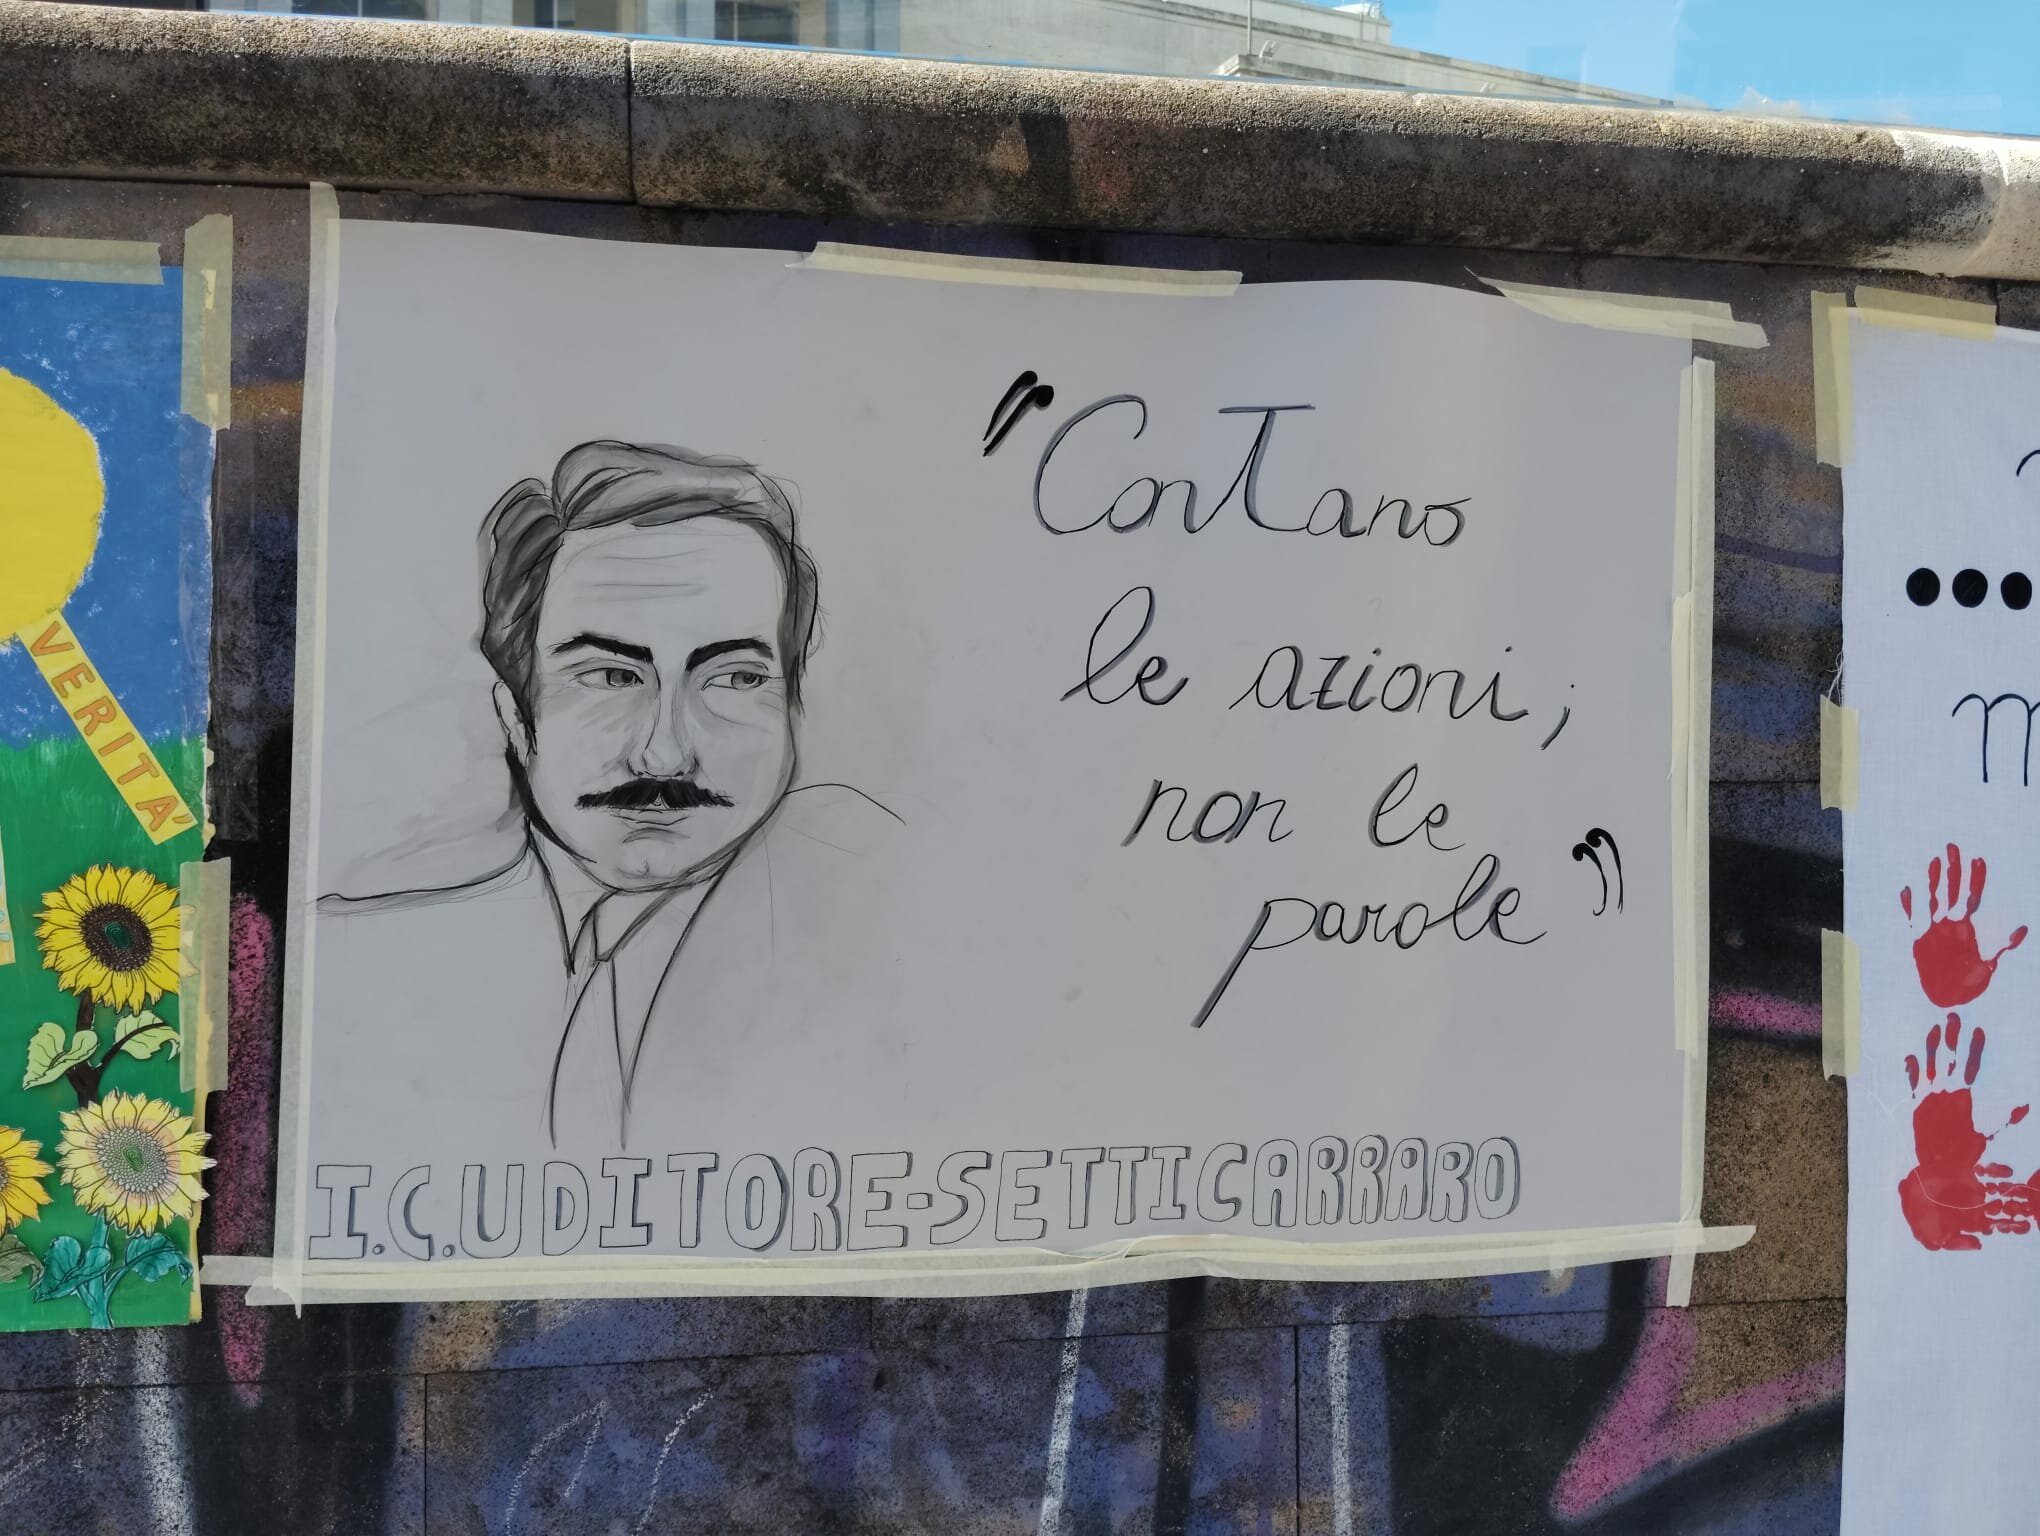 VERITA'
"Contano
le azioni;
non le
parole"
I.C.UDITORE-SETTICARRARO